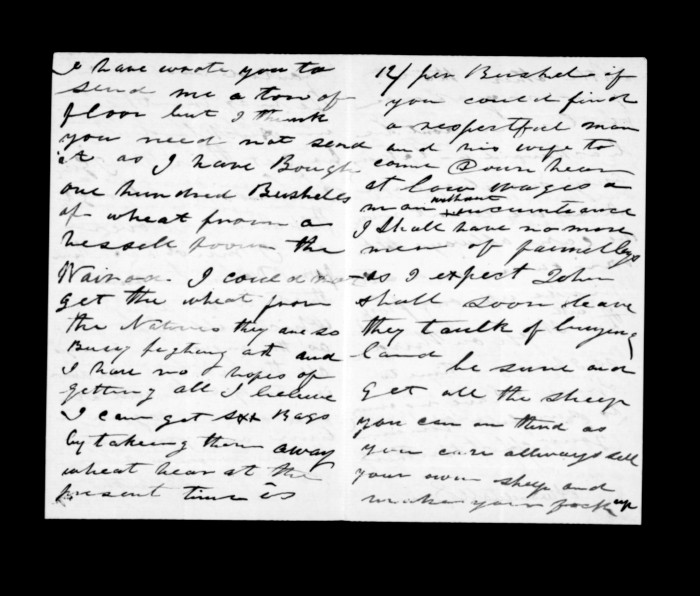 I have wrote you to
send me a ton of
floor but I think
you need not send
it as I have Bough
one hundred Bushells
of wheat from a
vessell from the
Wairoa. I could not
get the wheat from
the Natives they are so
Busey fighting att and
I have no hopes of
getting all I beleive
I can get sxt Bags
by takeing them away
wheat hear at the
present time is
12/ per Bushel if
you could find
a respectfull man
and his wife to
come down hear
at low wages a
man without incumbrance
I Shall have no more
men of familleys
as I expect John
shall soon leave
they taulk of buying
land
be sure and
get all the sheep
you can on third as
you can allways sell
your own sheep and
make your flock up